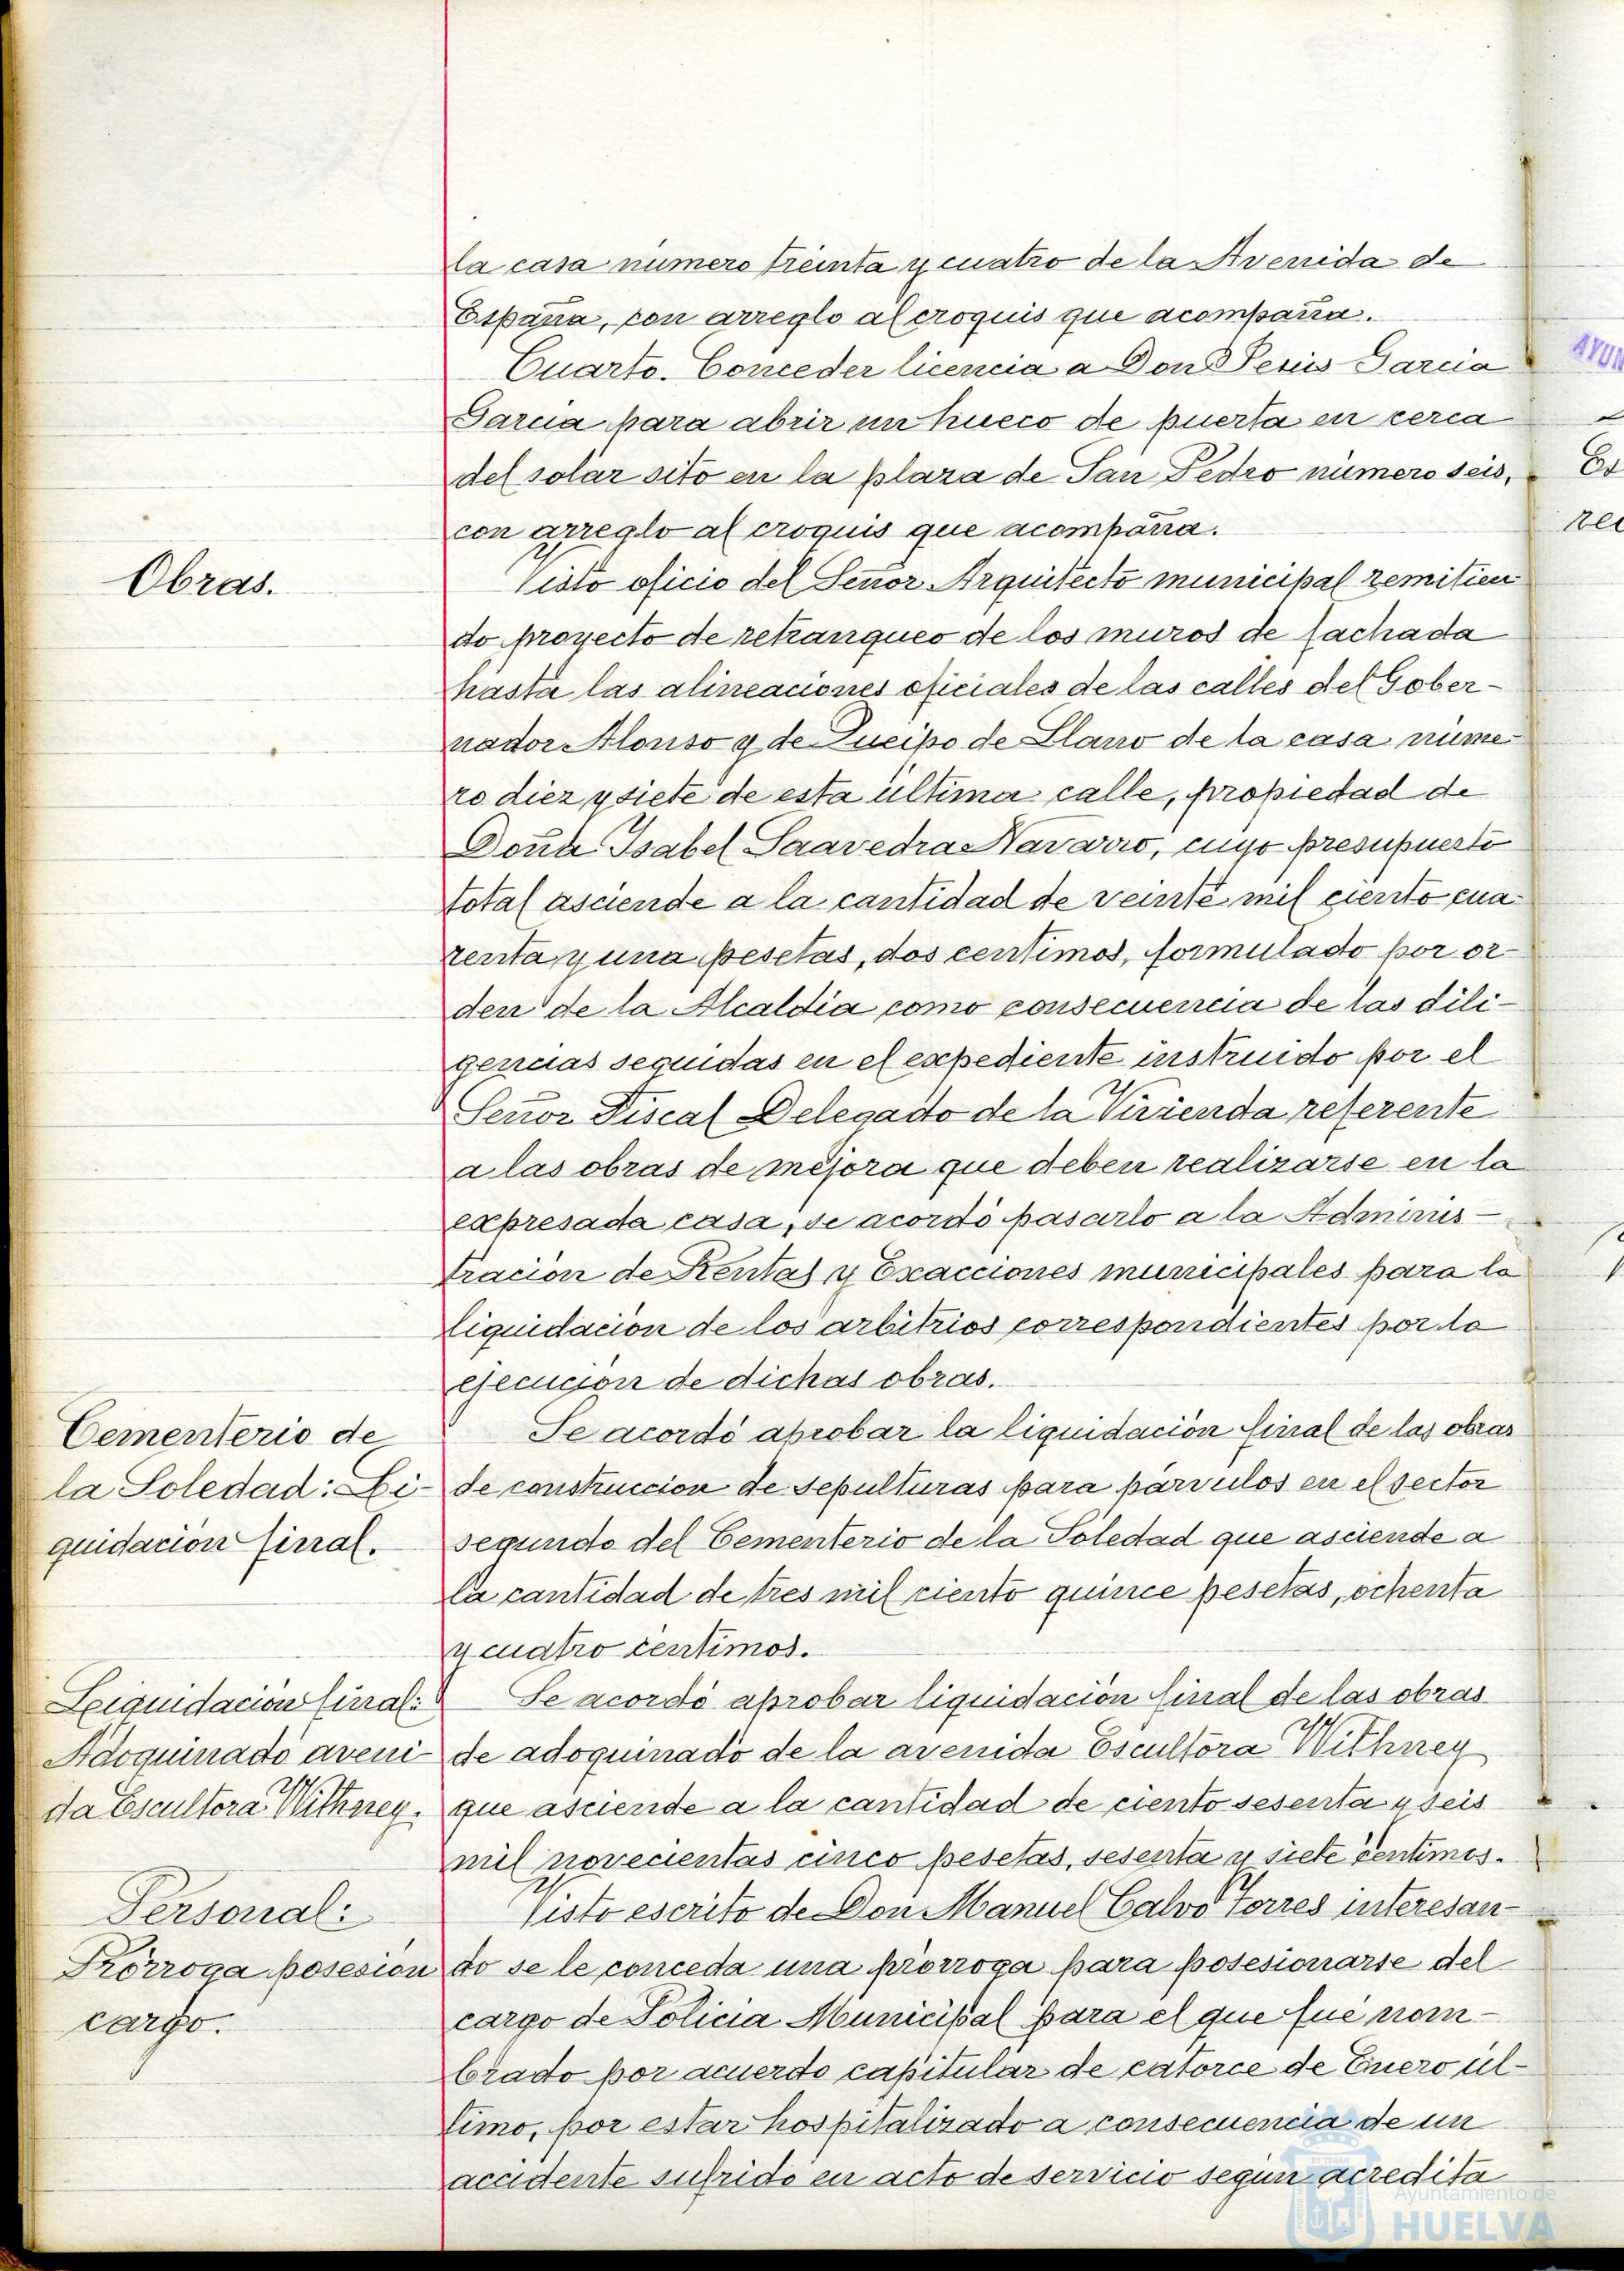 la casa número treinta y cuatro de la Avenida de
España, con arreglo al croquis que acompaña.
Cuarto. Conceder licencia a Don Jesús García
García para abrir un hueco de puerta en cerca
del solar sito en la plaza de San Pedro número seis,
con arreglo al croquis que acompaña.
Obras.
Visto oficio del Señor Arquitecto municipal remitien
do proyecto de retranqueo de los muros de fachada
hasta las alineaciones oficiales de las calles del Gober-
nador Alonso y de Queipo de Llano de la casa núme-
ro diez y siete de esta última calle, propiedad de
Doña Isabel Saavedra Navarro, cuyo presupuesto
total asciende a la cantidad de veinte mil ciento cua-
renta y una pesetas, dos centimos, formulado por or-
den de la Alcaldía como consecuencia de las dili-
gencias seguidas en el expediente instruido por el
Señor Fiscal Delegado de la Vivienda referente
a las obras de mejora que deben realizarse en la
expresada casa, se acordó pasarlo a la Adminis-
tración de Rentas y Exacciones municipales para la
liquidación de los arbitrios correspondientes por la
ejecución de dichas obras.
Cementerio de
la Soledad: Li-
quidación final.
Se acordó aprobar la liquidación final de las obras
de construccion de sepulturas para párvulos en el sector
segundo del Cementerio de la Soledad que asciende a
la cantidad de tres mil ciento quince pesetas, ochenta
y cuatro centimos.
Liquidación final:
Adoquinado aveni-
da Escultora Withney.
Se acordó aprobar liquidación final de las obras
de adoquinado de la avenida Escultora Withney
que asciende a la cantidad de ciento sesenta y seis
mil novecientas cinco pesetas, sesenta y siete centimos.
Personal:
Prórroga posesión
cargo.
Visto escrito de Don Manuel Calvo Torres interesan-
do se le conceda una prórroga para posesionarse del
cargo de Policia Municipal para el que fué nom-
brado por acuerdo capitular de catorce de Enero úl-
timo, por estar hospitalizado a consecuencia de un
accidente sufrido en acto de servicio según acredita
AYUN
Es
rec
Ayuntamiento de
HUELVA